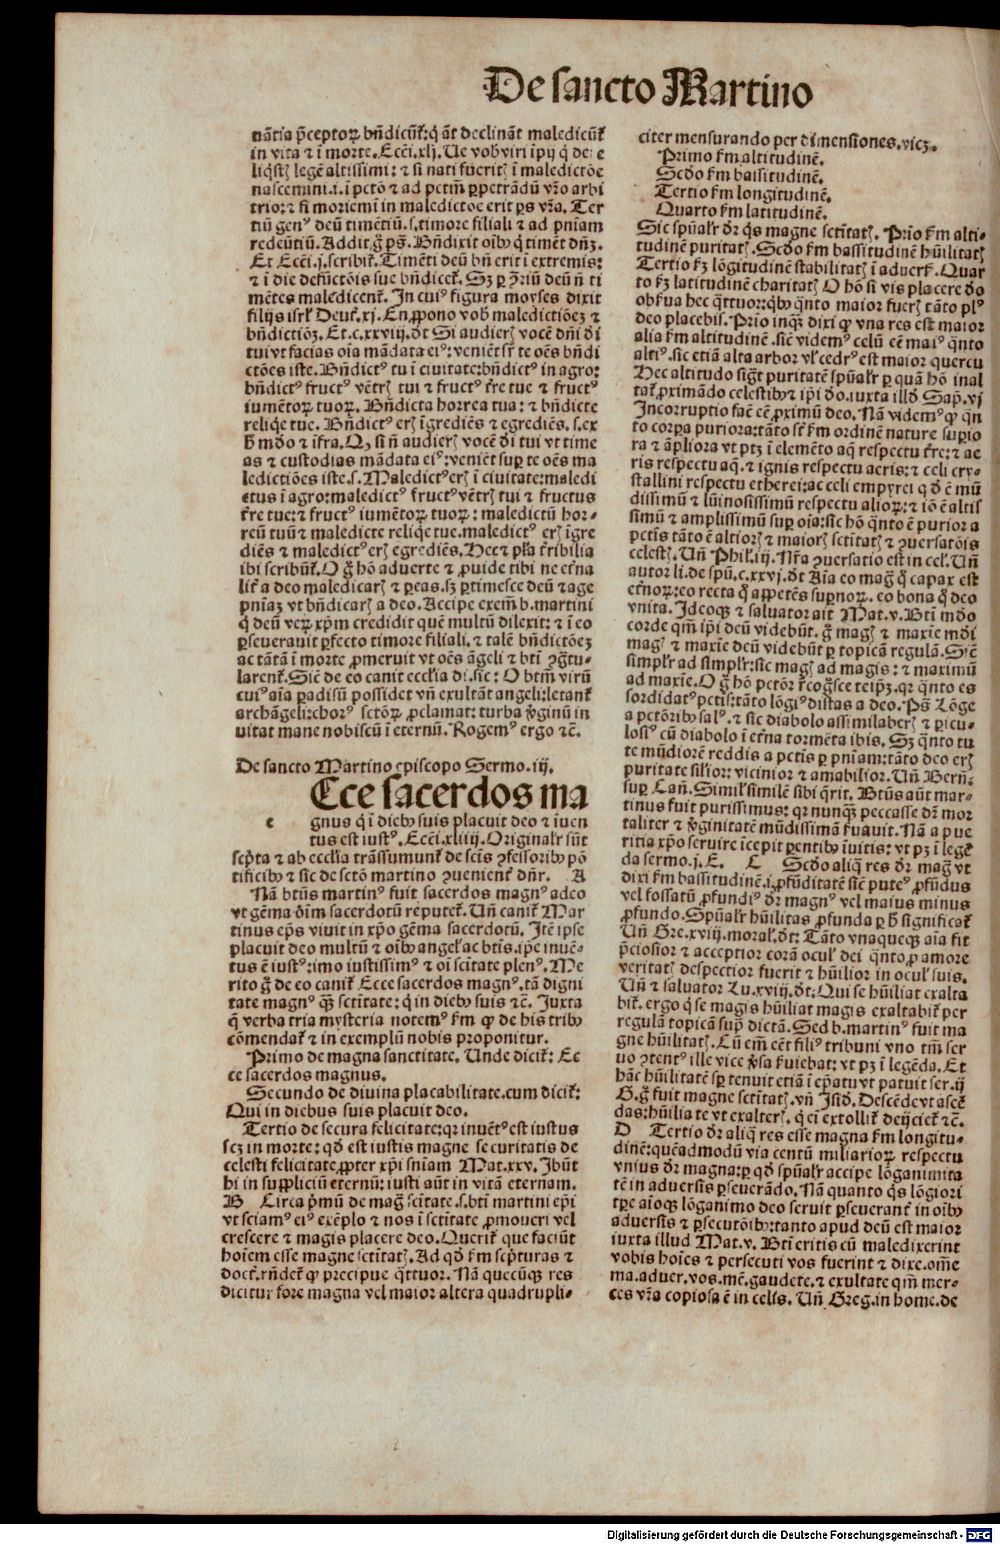 De sancto Martino
nātia p̄ceptoꝝ bn̄dicūt᷑: q̇ āt declināt maledicūt᷑
in vita ⁊ ī morte. Ecci. xlj. Ue vob̕ viri īpij q̇ de e
liq̇stꝫ legē altissimi: ⁊ si nati fueritꝭ ī maledictōe
nascemini. i. ī pctō ⁊ ad pctm̄ ꝑpetrādū vr̄o arbi
trio: ⁊ si moriemī in maledictoe erit ps vr̄a. Ter
tiū genꝰ deū timētiū. s. timore filiali ⁊ ad pn̄iam
redeūtiū. Addit g̊ ps̄. Bn̄dixit oīb̕ q̇ timēt dn̄ꝫ.
Et Ecci. j. scribit᷑. Timēti deū bn̄ erit ī extremis:
⁊ ī die defūctōis sue bn̄dicet᷑. Sꝫ ꝑ ꝯ̄riū deū n̄ ti
mētes maledicent᷑. In cuiꝰ figura moyses dixit
filijs isrl̕ Deut᷑. xj. En ꝓpono vob̕ maledictiōeꝫ ⁊
bn̄dictiōꝫ. Et. c. xxviij. dt̄ Si audierꝭ vocē dn̄i dī
tui vt facias oīa mādata eiꝰ: veniēt sr̄ te oēs bn̄di
ctōes iste. Bn̄dictꝰ tu ī ciuitate: bn̄dictꝰ in agro:
bn̄dictꝰ fructꝰ vētrꝭ tui ⁊ fructꝰ t̄re tue ⁊ fructꝰ
iumētoꝝ tuoꝝ. Bn̄dicta horrea tua: ⁊ bn̄dicte
reliq̇e tue. Bn̄dictꝰ erꝭ īgrediēs ⁊ egrediēs. s. ex
h̄ mdo ⁊ īfra. Qꝫ si n̄ audierꝭ vocē dī tui vt time
as ⁊ custodias mādata eiꝰ: veniēt suꝑ te oēs ma
ledictiōes iste. s. Maledictꝰ erꝭ ī ciuitate: maledi
ctus ī agro: maledictꝰ fructꝰ vētrꝭ tui ⁊ fructus
t̄re tue: ⁊ fructꝰ iumētoꝝ tuoꝝ: maledictū hor-
reū tuū ⁊ maledicte reliq̇e tue. maledictꝰ erꝭ īgre
diēs ⁊ maledictꝰ erꝭ egrediēs. Hec ⁊ pl̕a t̄ribilia
ibi scribūt᷑. O g̊ hō aduerte ⁊ ꝓuide tibi ne et̄na
lit᷑ a deo maledicarꝭ ⁊ ꝑeas. sꝫ ꝑtimesce deū ⁊ age
pn̄iaꝫ vt bn̄dicarꝭ a deo. Accipe exem̄ b. martini
q̇ deū veꝝ xp̄m credidit quē multū dilexit: ⁊ ī eo
ꝑseuerauit ꝑfecto timore filiali. ⁊ talē bn̄dictōeꝫ
ac tātā ī morte ꝓmeruit vt oēs āgeli ⁊ bt̄i ꝯg̊tu-
larent᷑. Sic̄ de eo canit eccl̕ia di. sic: O btm̄ virū
cuiꝰ aīa ꝑadisū possidet vn̄ exultāt angeli: letant᷑
archāgeli: chorꝰ sctōꝝ ꝓclamat: turba v̓ginū in
uitat mane nobiscū ī eternū. Rogemꝰ ergo ⁊c̄.
De sancto Martino episcopo Sermo. iij.
Ecce sacerdos ma
e gnus q̇ ī dieb̕ suis placuit deo ⁊ īuen
tus est iustꝰ. Ecci. xliiij. Originalr̄ sūt
scp̄ta ⁊ ab eccl̕ia trāssumunt᷑ de scīs ꝯfessorib̕ pō
tificib̕ ⁊ sic de sctō martino ꝯuenient᷑ dn̄r. A
Nā btūs martinꝰ fuit sacerdos magnꝰ adeo
vt gēma dīm sacerdotū reputet᷑. Un̄ canit᷑ Mar
tinus ep̄s viuit in xp̄o gēma sacerdotū. Itē ipse
placuit deo multū ⁊ oīb̕ angel̕ ac btīs. ip̄e inuē-
tus ē iustꝰ: imo iustissimꝰ ⁊ oī scītate plenꝰ. Me
rito g̊ de eo canit᷑ Ecce sacerdos magnꝰ. tā digni
tate magnꝰ q̄ꝫ sctītate: q̇ in dieb̕ suis ⁊c̄. Juxta
q̄ verba tria mysteria notemꝰ fm̄ ꝙ de his trib̕
cōmendat᷑ ⁊ in exemplū nobis proponitur.
Primo de magna sanctitate. Unde dicit᷑: Ec
ce sacerdos magnus.
Secundo de diuina placabilitate. cum dicit᷑:
Qui in diebus suis placuit deo.
Tertio de secura felicitate: qr inuētꝰ est iustus
scꝫ in morte: qd̕ est iustis magne securitatis de
celesti felicitate ꝓpter xp̄i sn̄iam Mat. xxv. Ibūt
hi in suppliciū eternū: iusti aūt in vitā eternam.
B Circa p̄mū de mag̊ scītate. s. btī martini ep̄i
vt sciamꝰ eiꝰ exēplo ⁊ nos ī sctītate ꝓmoueri vel
crescere ⁊ magis placere deo. Querit᷑ que faciūt
hoīem esse magne sctītatꝭ. Ad qd̕ fm̄ scp̄turas ⁊
doct᷑. rn̄det᷑ ꝙ precipue q̄ttuor. Nā quecūqꝫ res
dicitur fore magna vel maior altera quadrupli-
citer mensurando per dimensiones. vicꝫ.
Primo fm̄ altitudinē.
Scd̕o fm̄ bassitudinē.
Tertio fm̄ longitudinē.
Quarto fm̄ latitudinē.
Sic spūalr̄ dr̄ q̇s magne sctītatꝭ. Prīo fm̄ alti-
tudinē puritatꝭ. Scd̕o fm̄ bassitudinē hūilitatꝭ
Tertio fꝫ lōgitudinē stabilitatꝭ ī aduerſ. Quar
to fꝫ latitudinē charitatꝭ O hō si vis placere dō
obſua hec q̄ttuor: qb̕ q̇nto maior fuerꝭ tāto pl̕ꝰ
deo placebis. Prīo inqꝫ dixi ꝙ vna res est maior
alia fm̄ altitudinē. sic̄ videmꝰ celū eē maiꝰ q̇nto
altiꝰ. sic etiā alta arbor vl̕ cedrꝰ est maior quercu
Hec altitudo sig̊t puritatē spūalr̄ ꝑ quā hō inal
tat᷑ ꝓximādo celestib̕ ⁊ ip̄i dō. iuxta illd̕ Sap̄. vj
Incorruptio facē eē ꝓximū deo. Nā videmꝰ ꝙ q̇n
to corꝑa puriora: tāto st̄ fm̄ ordinē nature supio
ra ⁊ āpliora vt ptꝫ ī elemēto aq̄ respectu t̄re: ⁊ ae
ris respectu aq̄. ⁊ ignis respectu aeris: ⁊ celi cry-
stallini respectu etherei: ac celi empyrei qd̕ ē mū
dissimū ⁊ lūinosissimū respectu alioꝝ: ⁊ iō ē altis
simū ⁊ amplissimū suꝑ oīa: sic hō q̇nto ē purior a
pctīs tāto ē altiorꝭ ⁊ maiorꝭ sctītatꝭ ⁊ ꝯuersatōis
celestꝭ. Un̄ Phil̕. iij. Nr̄a ꝯuersatio est in cel̕. Un̄
autor li. de spū. c. xxvj. dt̄ Aīa eo mag̊ q̇ capax est
et̄noꝝ: eo recta q̇ appetēs suꝑnoꝝ. eo bona q̇ deo
vnita. Ideoqꝫ ⁊ saluator ait Mat. v. Btī mdo
corde qm̄ ip̄i deū videbūt. g̊ magꝭ ⁊ maxīe mdi
magꝭ ⁊ maxīe deū videbūt ꝑ topicā regulā. Sic̄
simplr̄ ad simplr̄: sic magꝭ ad magis: ⁊ maximū
ad maxīe. O g̊ hō pctōr r̄cog̊sce teip̄ꝫ. qr q̇nto es
sordidatꝰ pctīs: tāto lōgiꝰ distas a deo. Ps̄ Lōge
a pctōrib̕ salꝰ. ⁊ sic diabolo assimilaberꝭ ⁊ ꝑicu-
losiꝰ cū diabolo ī et̄na tormēta ibis. Sꝫ q̇nto tu
te mūdiorē reddis a pctīs ꝑ pn̄iam: tāto deo erꝭ
puritate sil̕ior: vicinior ⁊ amabilior. Un̄ Bern̄:
suꝑ Can̄. Simil̕ similē sibi q̇rit. Btūs aūt mar-
tinus fuit purissimus: qr nunqꝫ peccasse dr̄ mor
taliter ⁊ v̓ginitatē mūdissimā ſuauit. Nā a pue
ritia xp̄o seruire īcepit ꝑentib̕ īuitis: vt pꝫ ī legē
da sermo. j. E. C Scd̕o aliq̄ res dr̄ mag̊ vt
dixi fm̄ bassitudinē. i. ꝓfūditatē sic̄ puteꝰ ꝓfūdus
vel fossatū ꝓfundiꝰ dr̄ magnꝰ vel maius minus
ꝓfundo. Spūalr̄ hūilitas ꝓfunda ꝑ h̄ significat᷑
Un̄ Gre. xviij. moral̕. dt̄: Tāto vnaqueqꝫ aīa fit
p̄ciosior ⁊ acceptior corā ocul̕ dei q̇nto ꝓ amore
veritatꝭ despectior fuerit ⁊ hūilior in ocul̕ suis.
Un̄ ⁊ saluator Lu. xviij. dt̄: Qui se hūiliat exalta
bit᷑. ergo q̇ se magis hūiliat magis exaltabit᷑ per
regulā topicā sup̄ dictā. Sed b. martinꝰ fuit ma
gne hūilitatꝭ. Cū em̄ eēt filiꝰ tribuni vno tm̄ ser
uo ꝯtentꝰ ille vice v̓sa ſuiebat: vt pꝫ ī legēda. Et
hāc hūilitatē sꝑ tenuit etiā ī ep̄atu vt patuit ser. ij
G. g̊ fuit magne sctītatꝭ. vn̄ Isid̕. Descēde vt ascē
das: hūilia te vt exalterꝭ. q̇ eī extollit᷑ deijciet᷑ ⁊c̄.
D Tertio dr̄ aliq̄ res esse magna fm̄ longitu-
dinē: quēadmodū via centū miliarioꝝ respectu
vnius dr̄ magna: ꝑ qd̕ spūalr̄ accipe lōganimita
tē in aduersis ꝑseuerādo. Nā quanto q̇s lōgiori
tꝑe aīoqꝫ lōganimo deo seruit ꝑseuerant᷑ in oīb̕
aduersis ⁊ ꝑsecutōib̕: tanto apud deū est maior
iuxta illud Mat. v. Btī eritis cū maledixerint
vobis hoīes ⁊ persecuti vos fuerint ⁊ dixe. om̄e
ma. aduer. vos. mē. gaudete. ⁊ exultate qm̄ mer-
ces vr̄a copiosa ē in celis. Un̄ Greg. in home. de
Digitalisierung gefördert durch die Deutsche Forschungsgemeinschaft - DFG